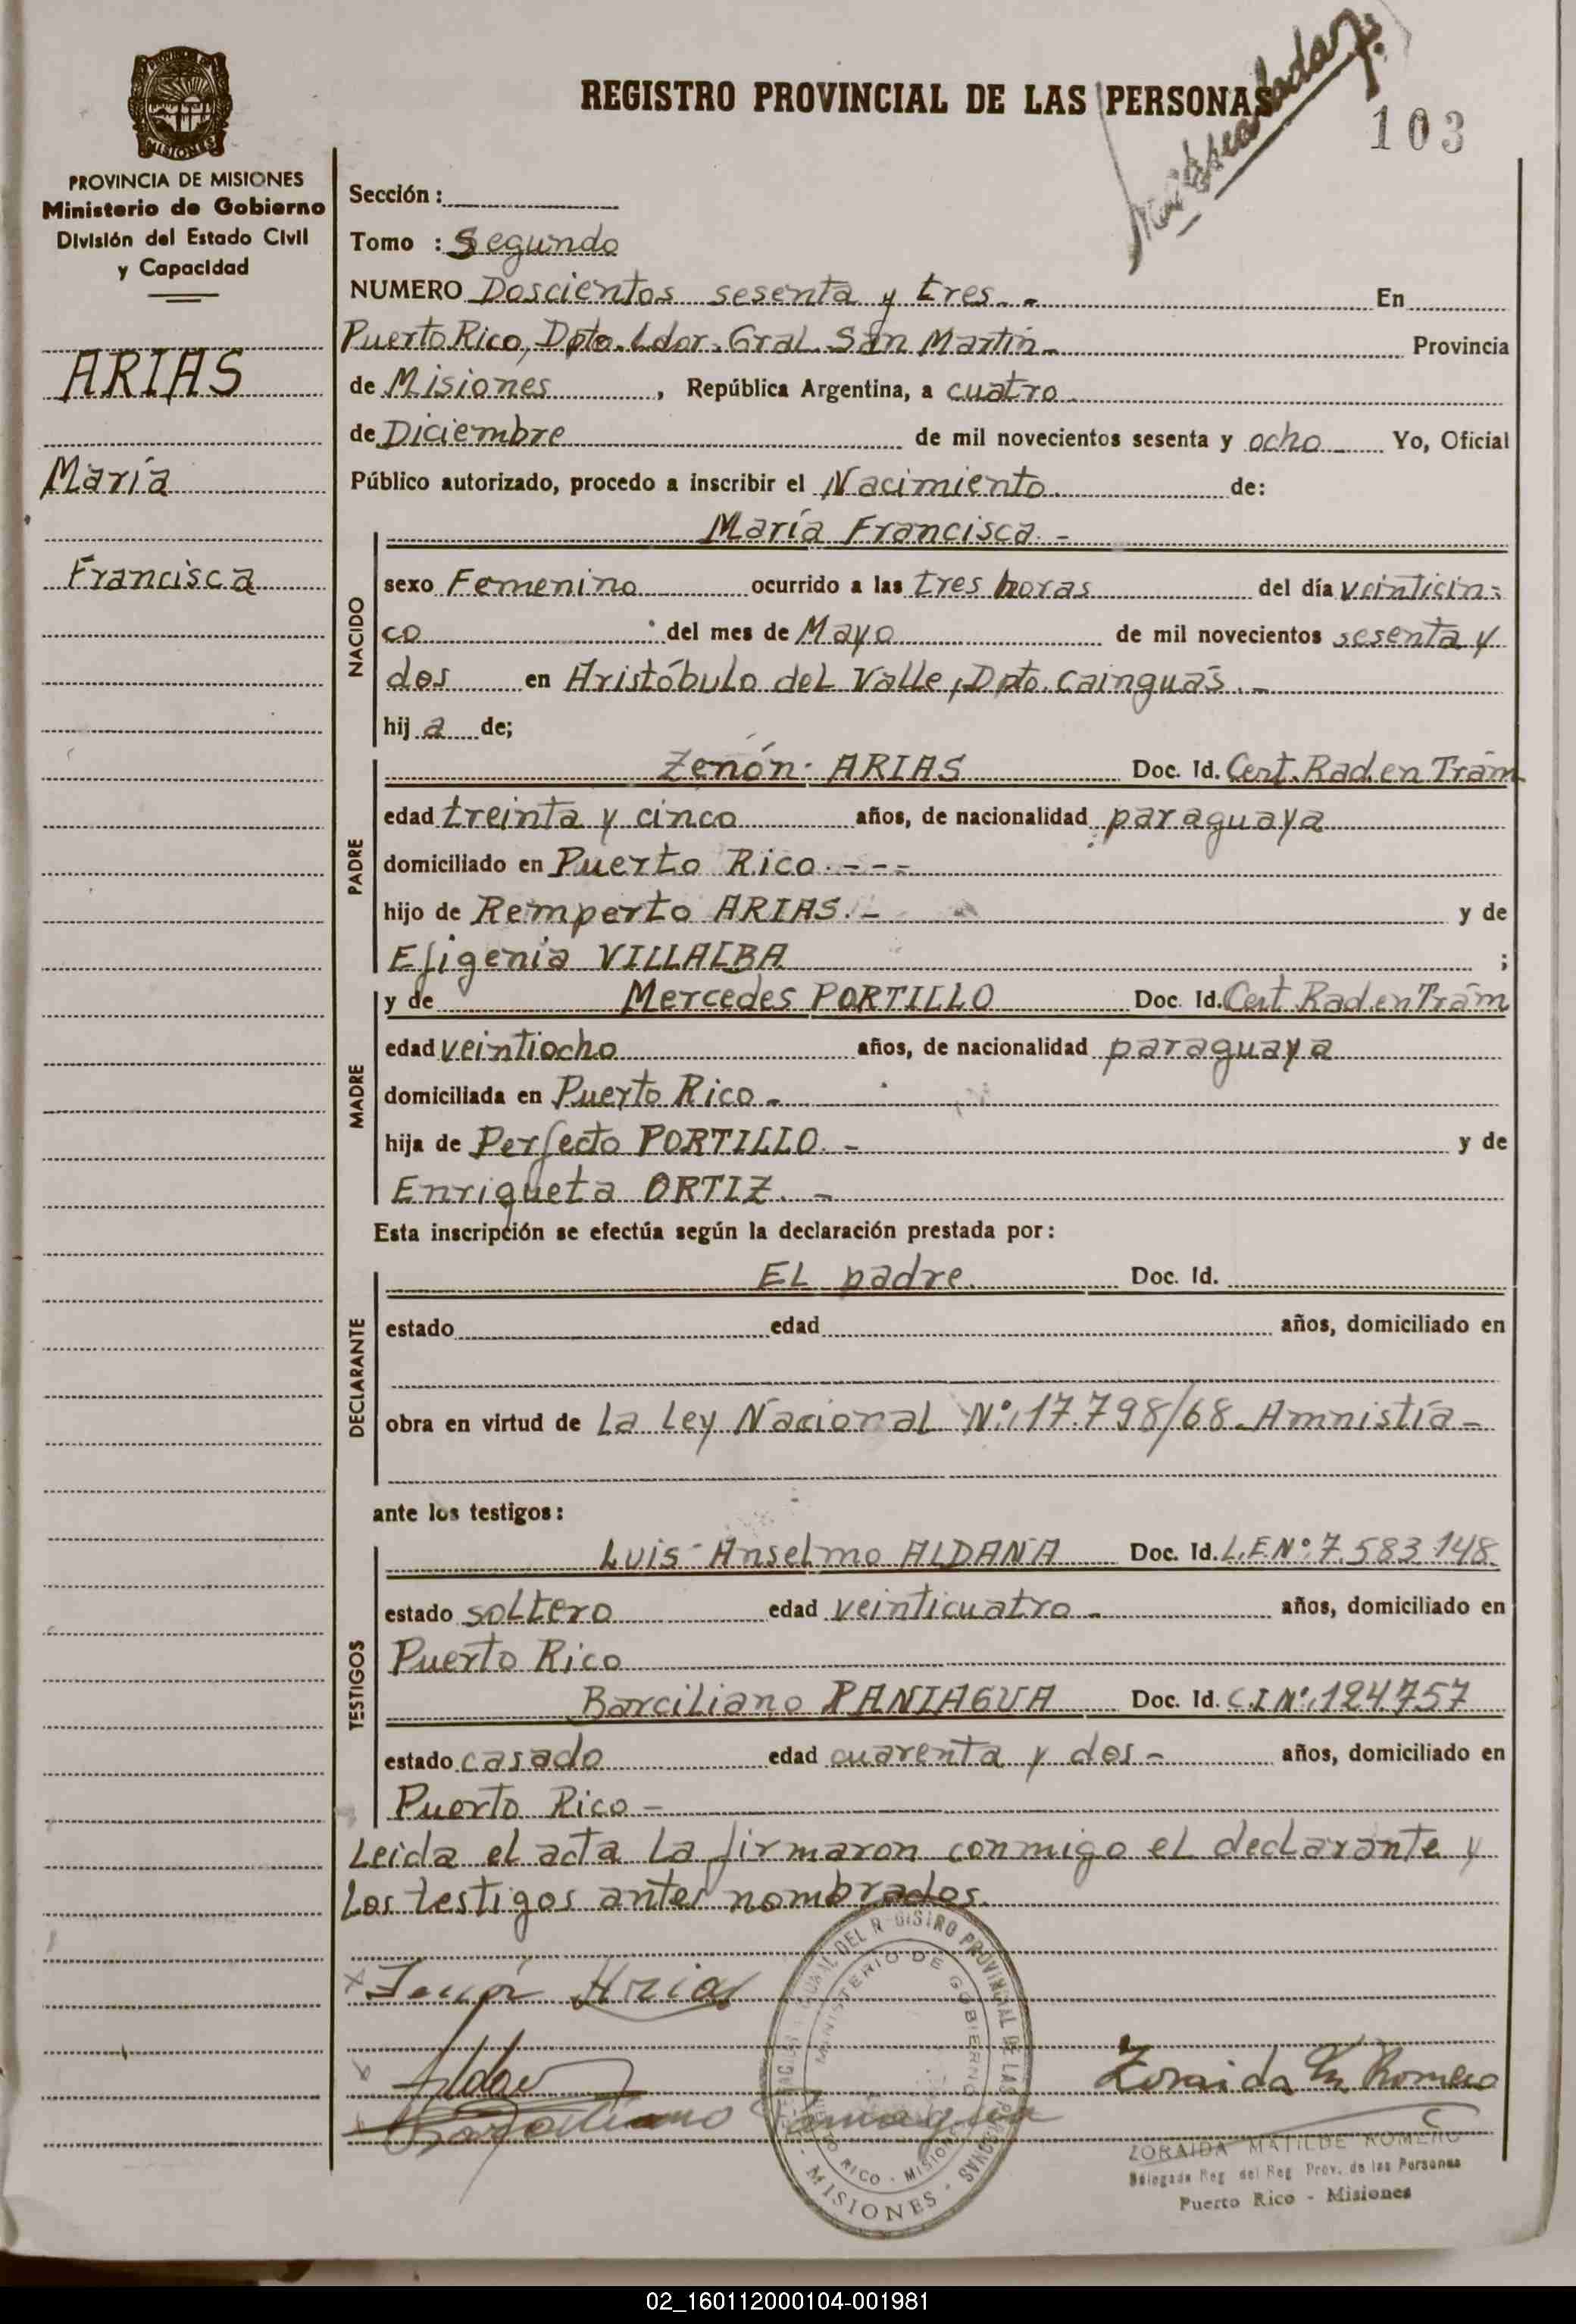 REGISTRO PROVINCIAL DE LAS PERSONAS
103
PROVINCIA DE MISIONES
Ministerio de Gobierno
División del Estado Civil
y Capacidad
ARIAS
María
Francisca
Sección:
Tomo : Segundo
NUMERO Doscientos sesenta y tres.- En
Puerto Rico, Dpto. Ldor. Gral. San Martín.- Provincia
de Misiones, República Argentina, a cuatro
de Diciembre de mil novecientos sesenta y ocho Yo, Oficial
Público autorizado, procedo a inscribir el Nacimiento de:
María Francisca.-
NACIDO
sexo Femenino ocurrido a las tres horas del día veinticin-
co del mes de Mayo de mil novecientos sesenta y
dos en Aristóbulo del Valle, Dpto. Cainguás.-
hij a de;
PADRE
Zenón ARIAS Doc. Id. Cert. Rad. en Trám
edad treinta y cinco años, de nacionalidad paraguaya
domiciliado en Puerto Rico.---
hijo de Remperto ARIAS.- y de
Efigenia VILLALBA ;
MADRE
y de Mercedes PORTILLO Doc. Id. Cert. Rad. en Trám
edad veintiocho años, de nacionalidad paraguaya
domiciliada en Puerto Rico.-
hija de Perfecto PORTILLO.- y de
Enriqueta ORTIZ.-
Esta inscripción se efectúa según la declaración prestada por:
DECLARANTE
El padre. Doc. Id.
estado edad años, domiciliado en
obra en virtud de La Ley Nacional Nº 17.798/68-Amnistía-
ante los testigos:
TESTIGOS
Luis Anselmo ALDANA Doc. Id. L.E.Nº 7.583.148.
estado soltero edad veinticuatro - años, domiciliado en
Puerto Rico
Barciliano PANIAGUA Doc. Id. C.I.Nº 124.757
estado casado edad cuarenta y dos - años, domiciliado en
Puerto Rico -
Leida el acta la firmaron conmigo el declarante y
los testigos antes nombrados.
Arias
Zoraida M Romero
ZORAIDA MATILDE ROMERO
Delegada Reg del Reg Prov. de las Personas
Puerto Rico - Misiones
MINISTERIO DE GOBIERNO
MISIONES
02_160112000104-001981